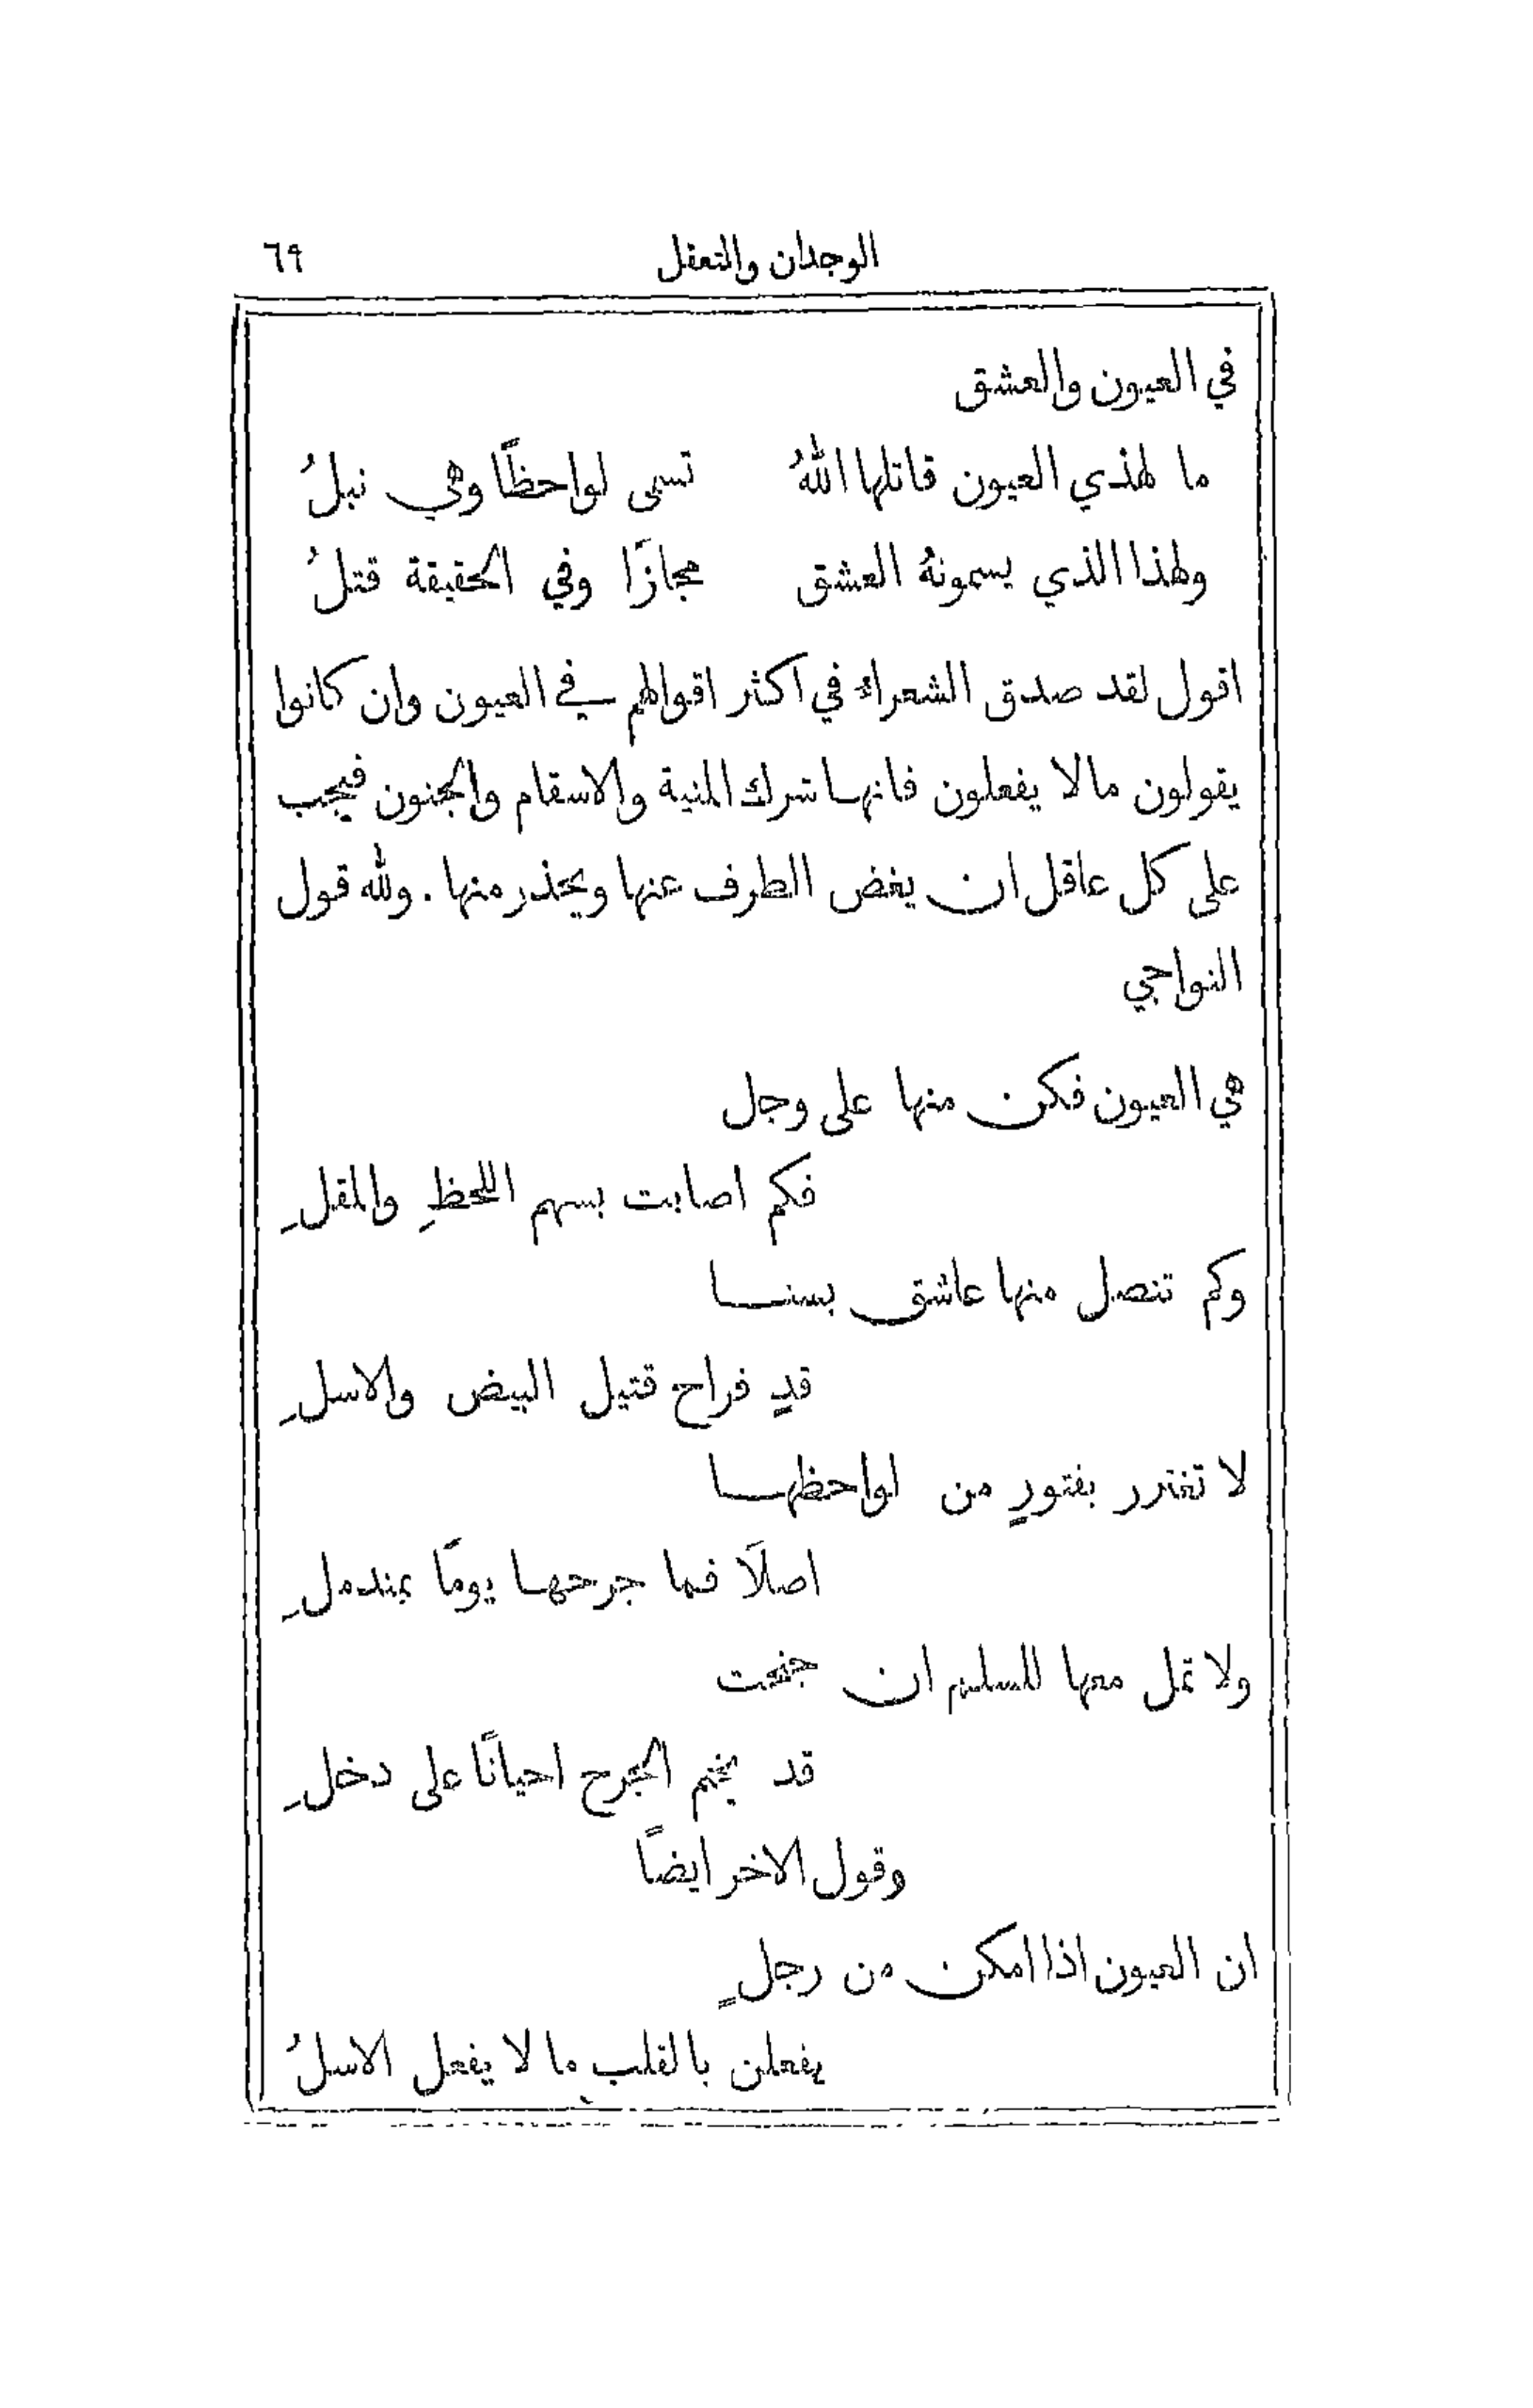 الوجدان والتعقل ٦٩
في العيون والعشق
ما لهذي العيون قاتلها اللهُ تسمى لواحظًا وهي نبلُ
ولهذا الذي يسمونهُ العشق مجازًا وفي الحقيقة قتلُ
اقول لقد صدق الشعراء في اكثر اقوالهم في العيون وان كانوا
يقولون مالا يفعلون فانها شرك المنية والاسقام والجنون فيجب
على كل عاقل ان يغض الطرف عنها ويحذر منها . ولله قول
النواجي
هي العيون فكن منها على وجل
فكم اصابت بسهم اللحظِ والمقلِ
وكم تنصل منها عاشق بسنا
قدٍ فراح قتيل البيض والاسلِ
لا تغترر بفتورٍ من لواحظها
اصلاً فما جرحها يومًا بمندملِ
ولا تمل معها للسلم ان جنحت
قد يختم الجرح احيانًا على دخلِ
وقول الاخر ايضاً
ان العيون اذا امكن من رجلٍ
يفعلن بالقلب ما لا يفعل الاسلُ